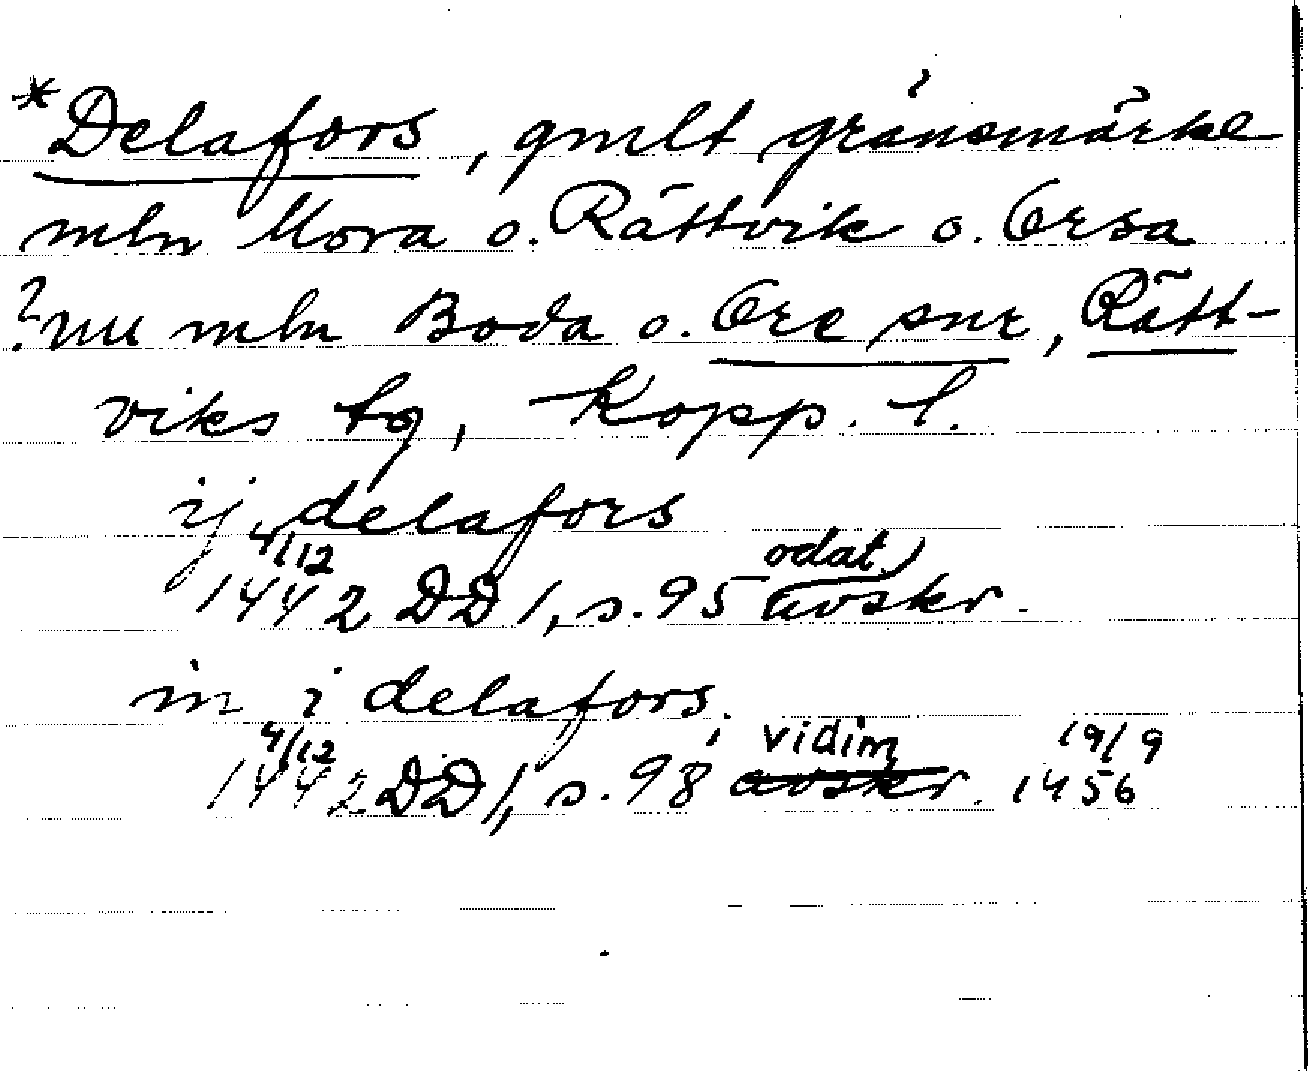 *Delafors, gmlt gränsmärke
mln Mora o. Rättvik o. Orsa
?nu mln Boda o. Ore snr, Rätt-
viks tg, Kopp. l.
ij delafors
4/12 1442 DD 1, s. 95 odat. avskr.
in i delafors,
4/12 1442 DD 1, s. 98 vidim. avskr. 19/9 1456